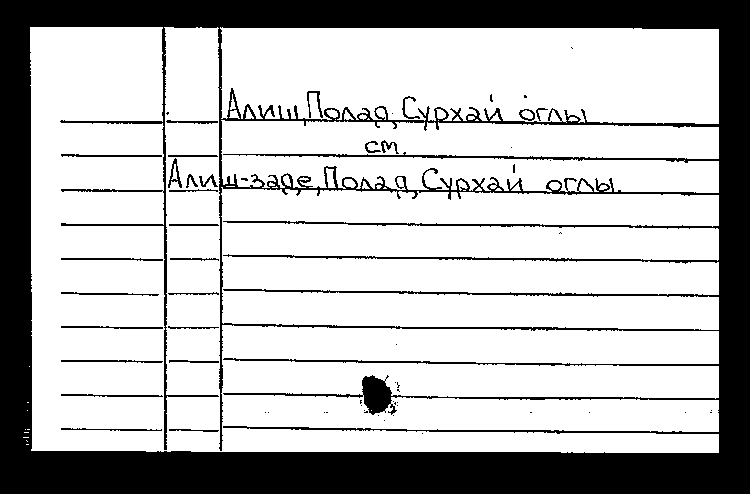 Алиш, Полад, Сурхай оглы
см.
Алиш-заде, Полад, Сурхай оглы.